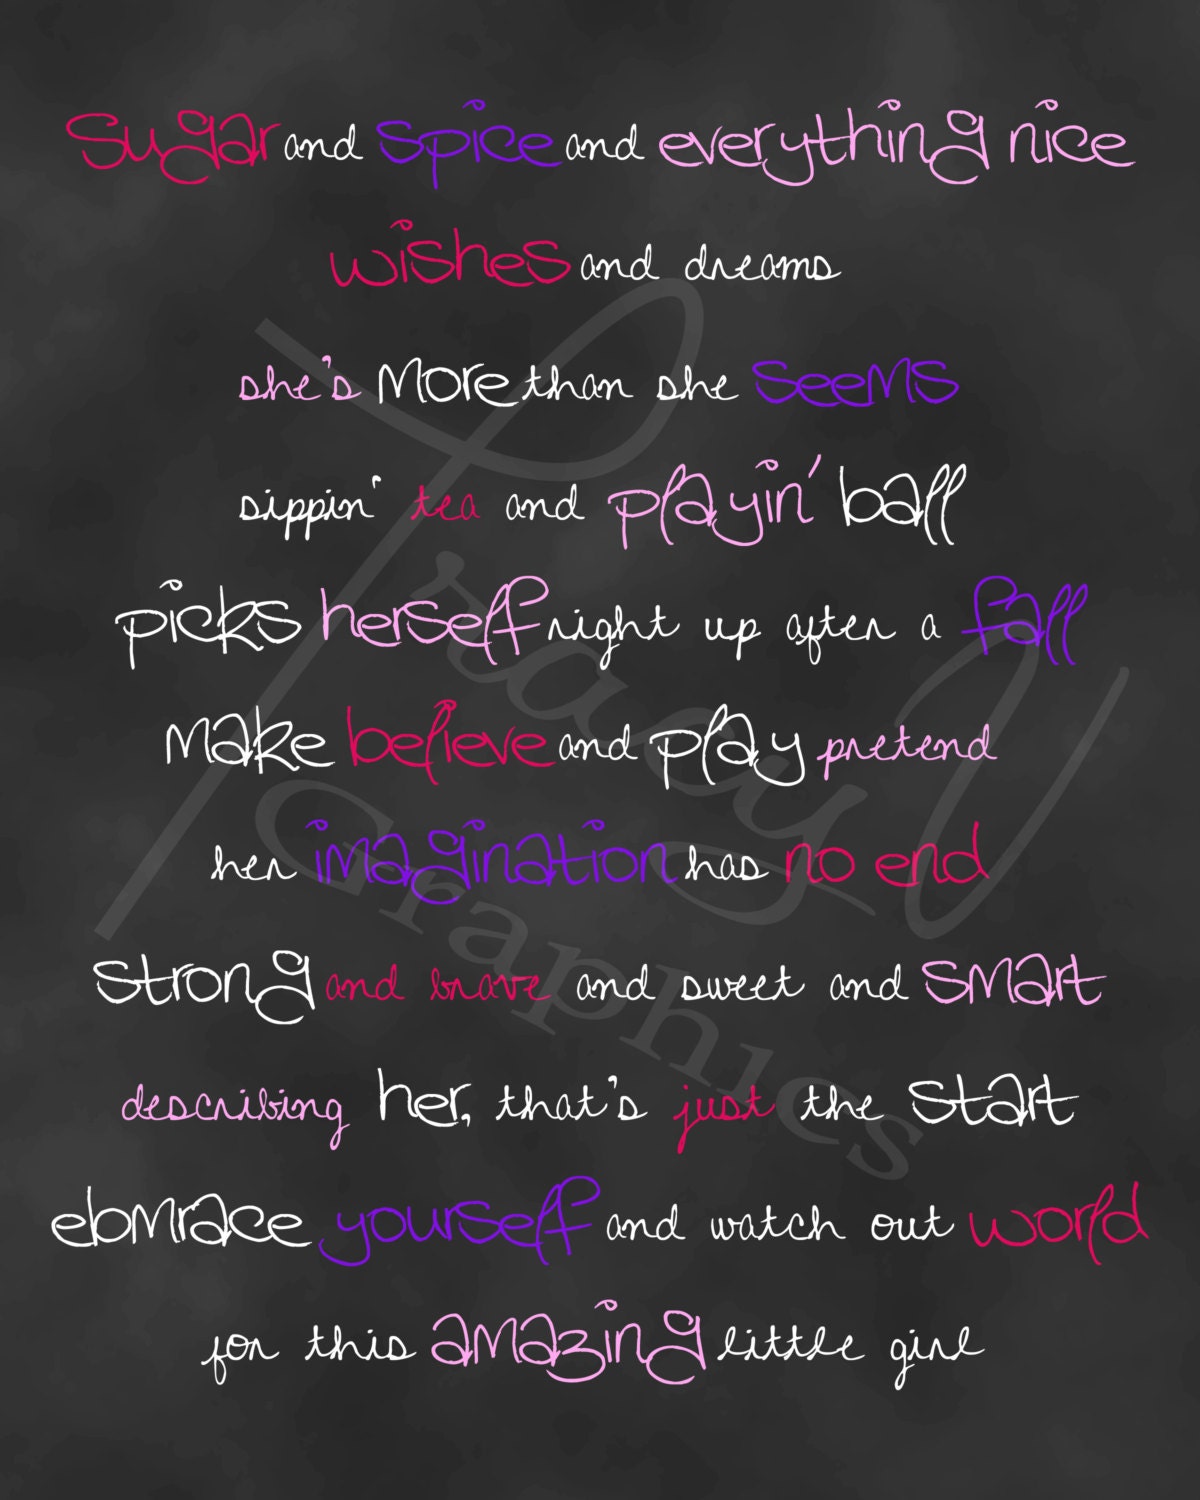 sugar and spice and everything nice
wishes and dreams
she's more than she seems
sippin' tea and playin' ball
picks herself right up after a fall
make believe and play pretend
her imagination has no end
strong and brave and sweet and smart
describing her, that's just the start
ebmrace yourself and watch out world
for this amazing little girl
TraceyV
Graphics